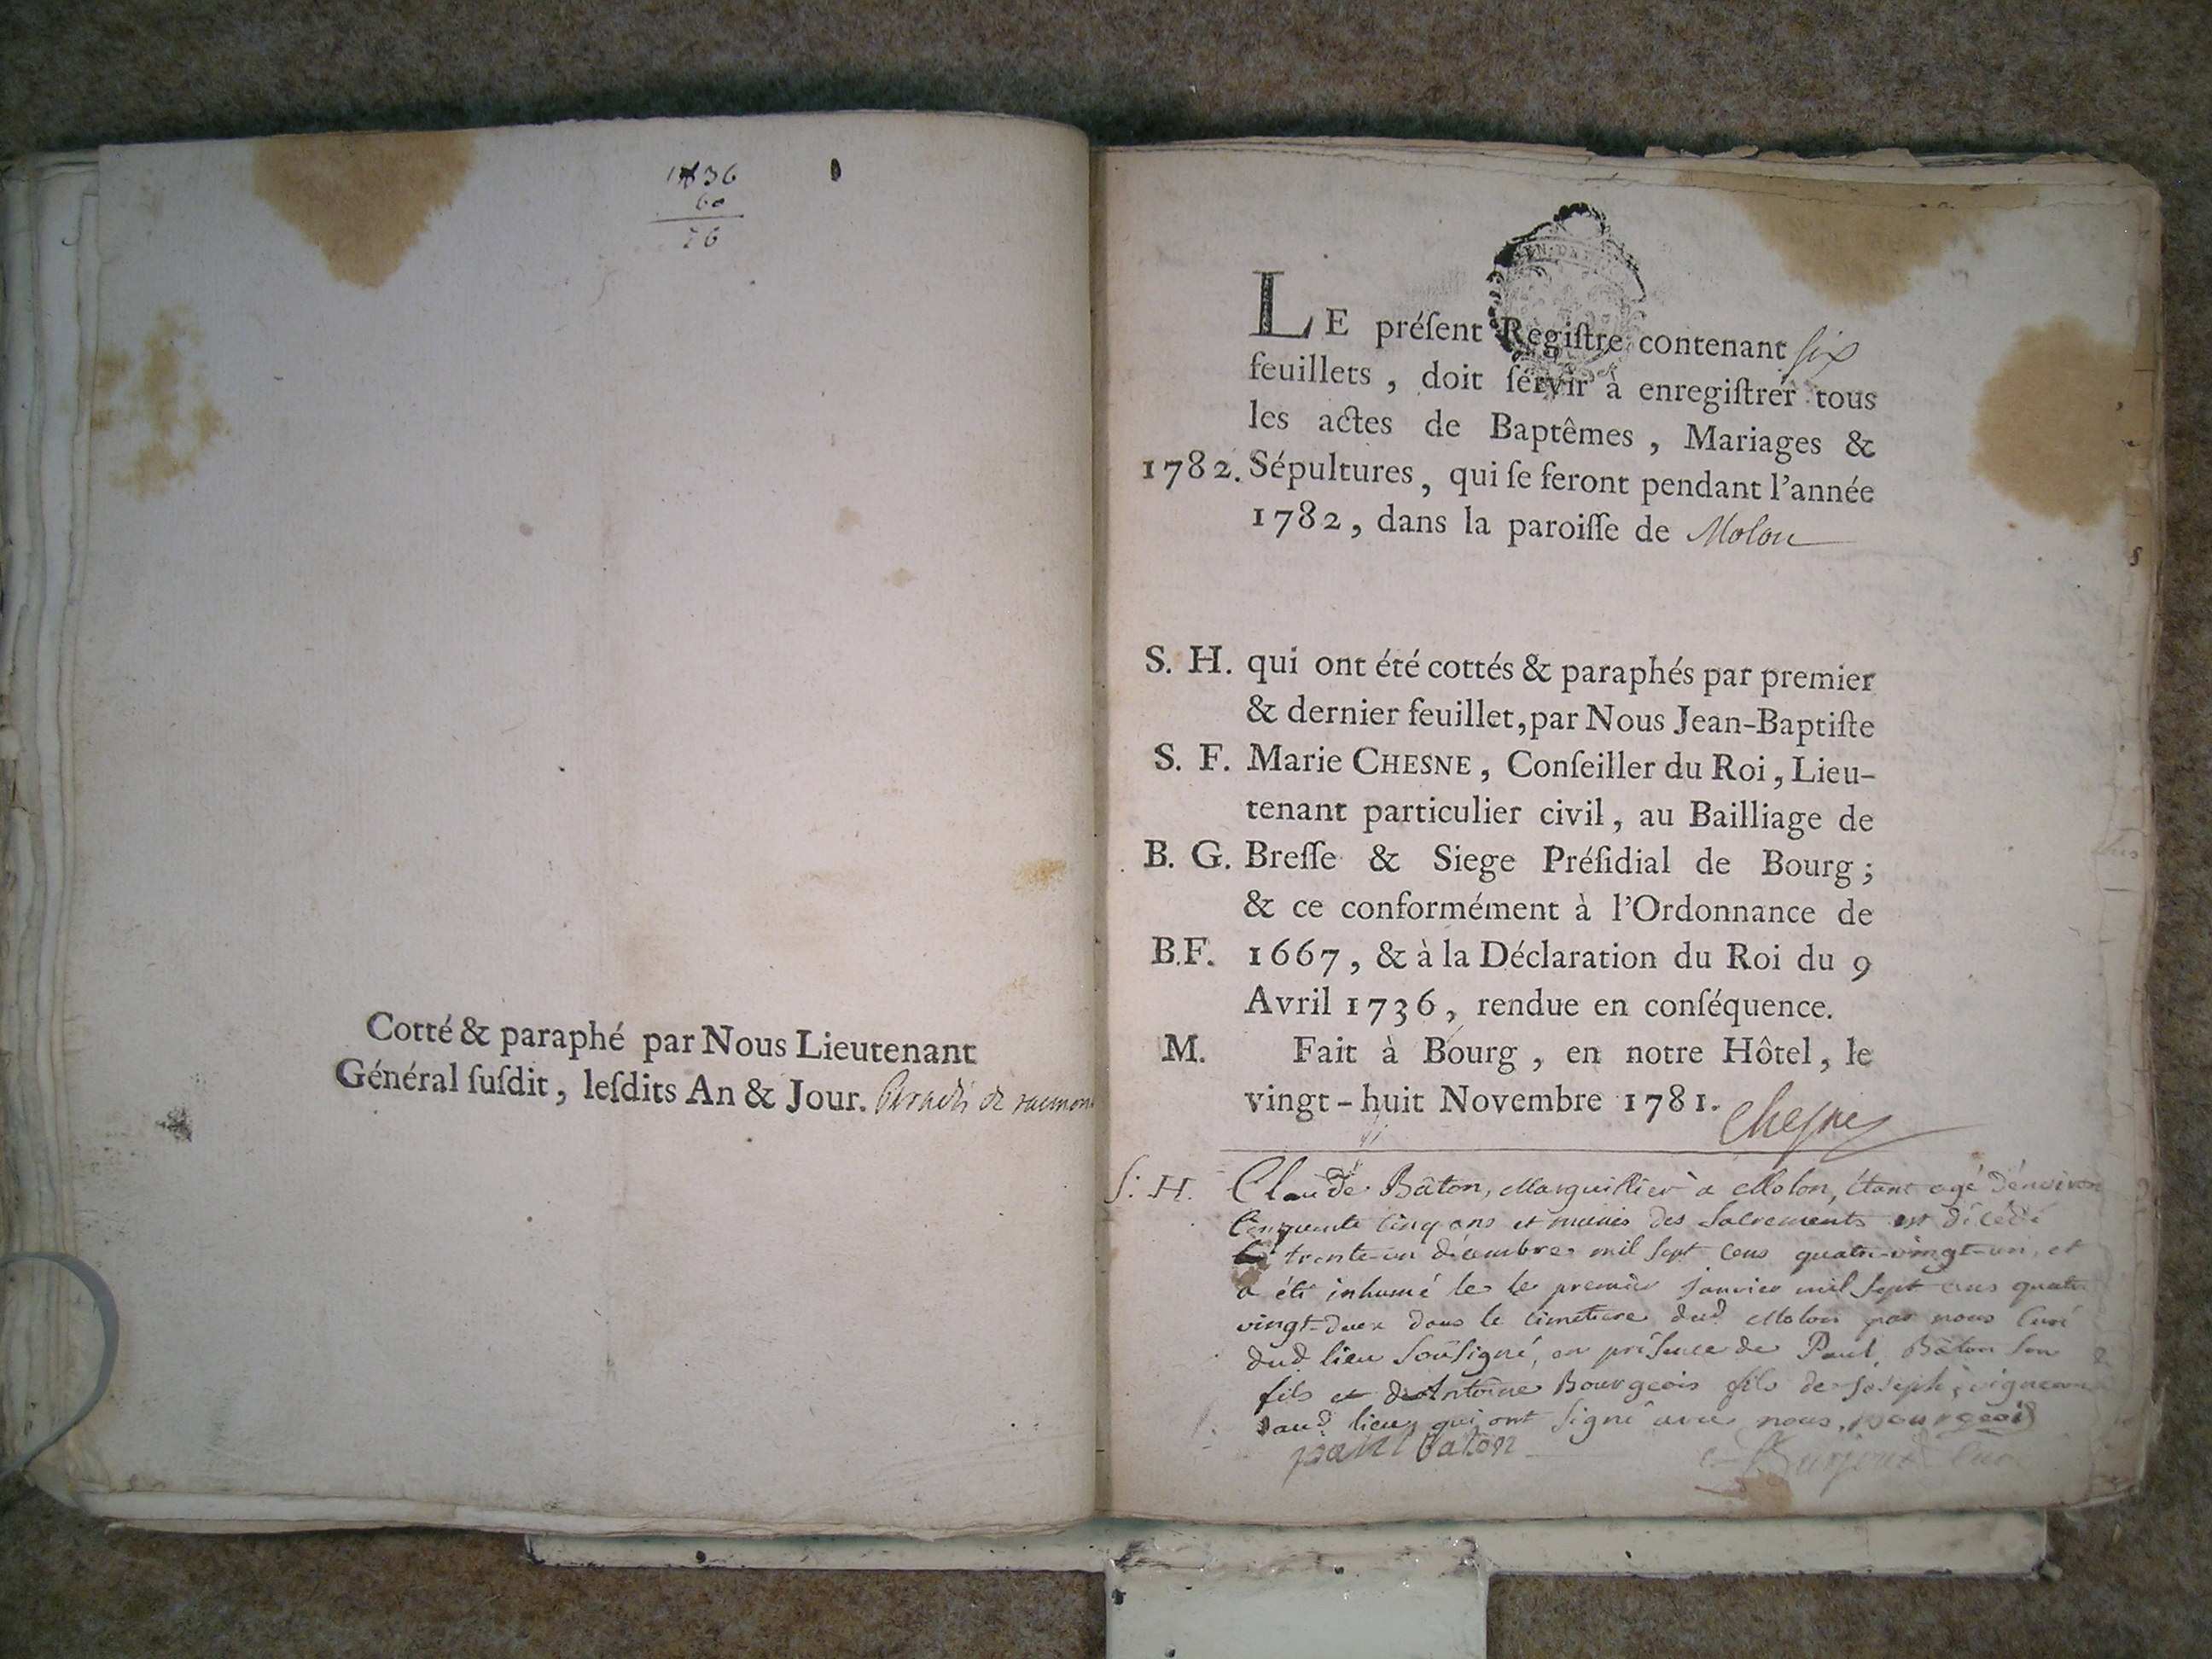 1736
60
76
Cotté & paraphé par Nous Lieutenant
Général ſuſdit, leſdits An & Jour.
LE préſent Regiſtre contenant ſix
feuillets, doit ſervir à enregiſtrer tous
les actes de Baptêmes, Mariages &
1782. Sépultures, qui ſe feront pendant l'année
1782, dans la paroiſſe de Molon
S. H. qui ont été cottés & paraphés par premier
& dernier feuillet, par Nous Jean-Baptiſte
S. F. Marie CHESNE, Conſeiller du Roi, Lieu-
tenant particulier civil, au Bailliage de
B. G. Breſſe & Siege Préſidial de Bourg;
& ce conformément à l'Ordonnance de
B.F. 1667, & à la Déclaration du Roi du 9
Avril 1736, rendue en conſéquence.
M. Fait à Bourg, en notre Hôtel, le
vingt-huit Novembre 1781. Chesne
S: H. Claude Bâton, Marguillier à Molon, étant agé d'environ
Cinquante Cinq ans et munis des Sacrements est décédé
trente-un décembre mil Sept Cens quatre-vingt-un, et
a été inhumé le le premier Janvier mil Sept cens quatre
vingt-deux dans le Cimetiere dud Molon par nous Curé
dud lieu Souſigné, en préſence de Paul Bâton Son
fils et d'Antoine Bourgeois fils de Joseph, vigneron
aud lieu, qui ont Signé avec nous. Bourgeois
paul baton